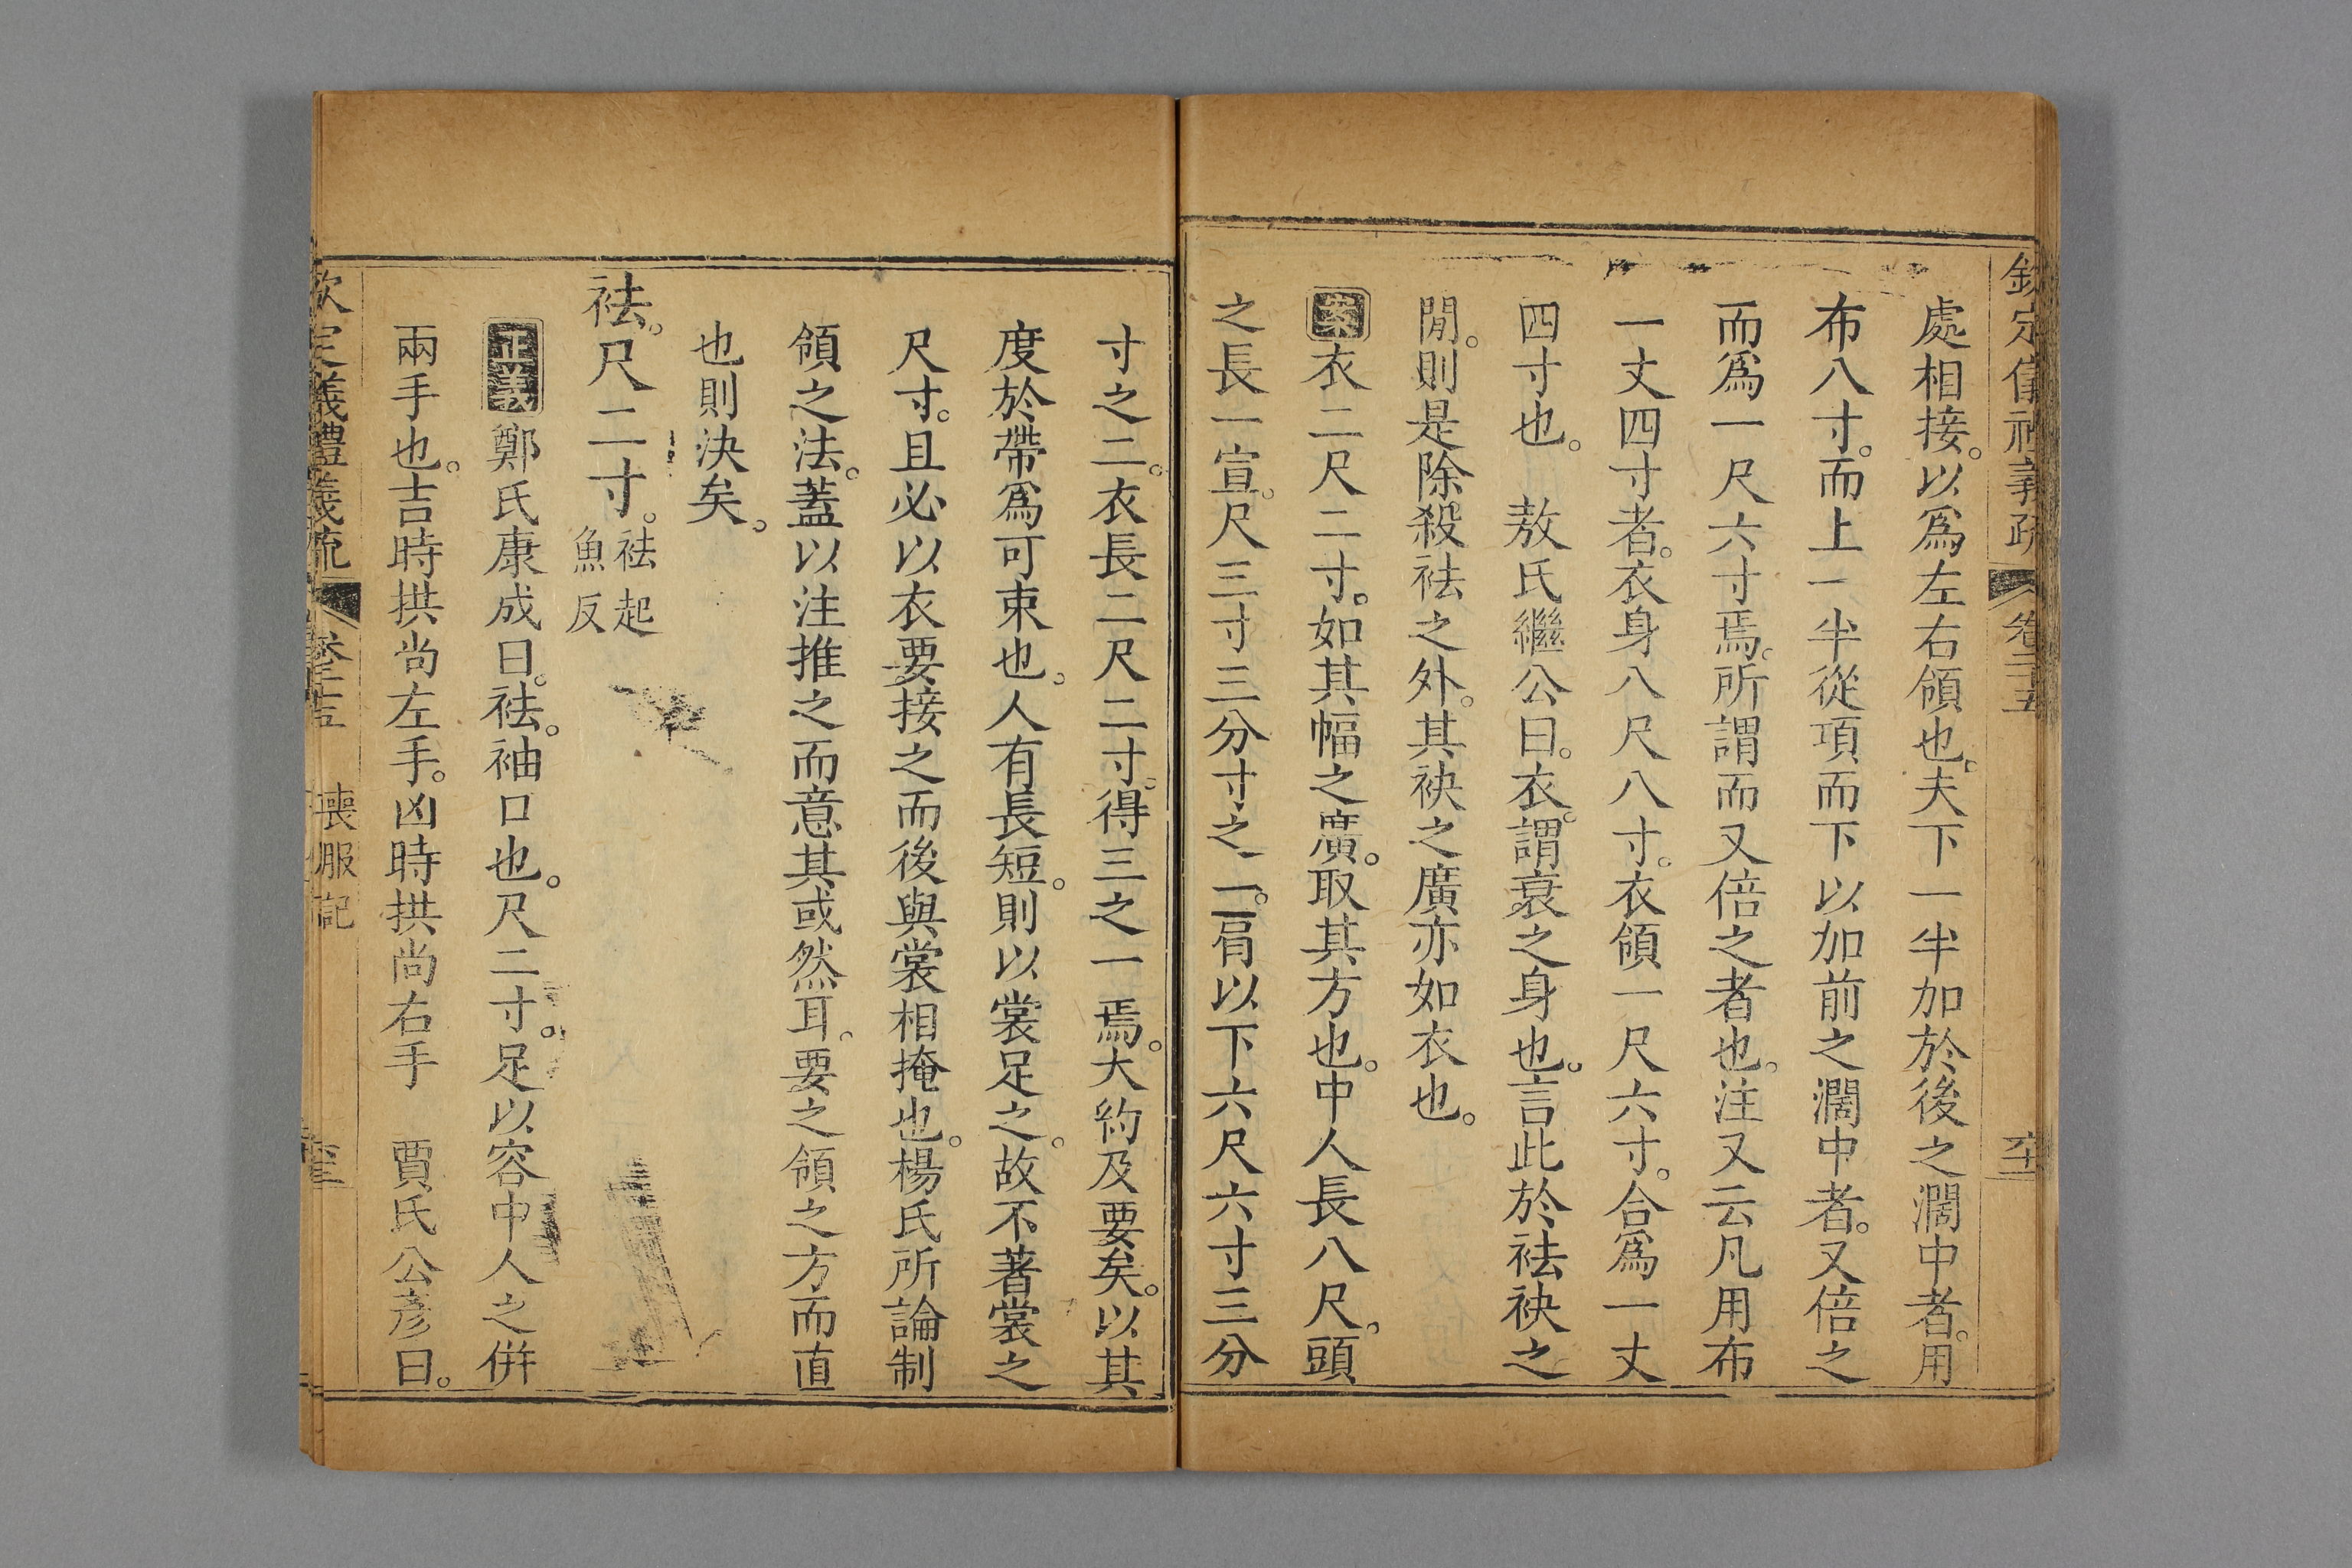 欽定儀禮義疏 卷二十五
處相接。以爲左右領也。夫下一半加於後之濶中者。用
布八寸。而上一半從項而下以加前之濶中者。又倍之
而爲一尺六寸焉。所謂而又倍之者也。注又云凡用布
一丈四寸者。衣身八尺八寸。衣領一尺六寸。合爲一丈
四寸也。 敖氏繼公曰。衣。謂衰之身也。言此於袪袂之
閒。則是除殺袪之外。其袂之廣亦如衣也。
案衣二尺二寸。如其幅之廣。取其方也。中人長八尺。頭
之長一宣。尺三寸三分寸之一。肩以下六尺六寸三分
寸之二。衣長二尺二寸。得三之一焉。大約及要矣。以其
度於帶爲可束也。人有長短。則以裳足之。故不著裳之
尺寸。且必以衣要接之而後與裳相掩也。楊氏所論制
領之法。蓋以注推之而意其或然耳。要之領之方而直
也則決矣。
袪。尺二寸。袪起
魚反
正義鄭氏康成曰。袪。袖口也。尺二寸。足以容中人之併
兩手也。吉時拱尚左手。凶時拱尚右手 賈氏公彥曰。
欽定儀禮義疏 喪服記